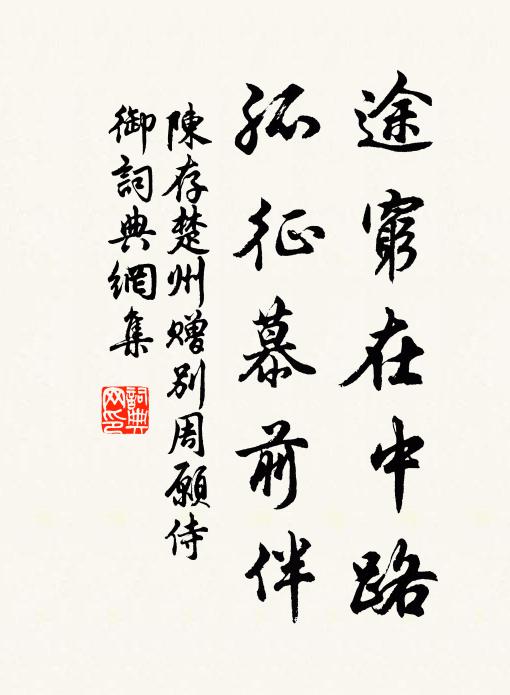 途窮在中路
孤征慕前伴
陳存楚州贈別周願侍
御詞典網集
詞典
网印